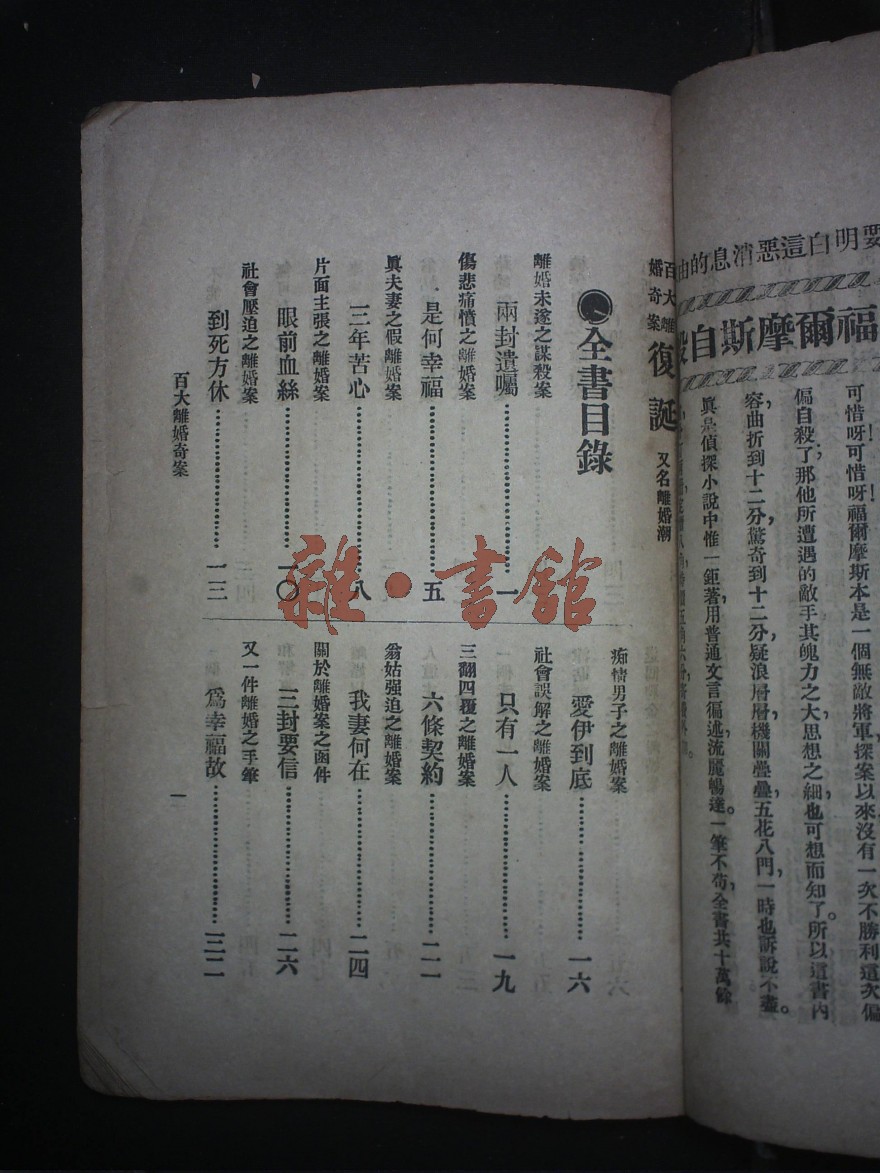 要明白這惡消息的由
福爾摩斯自殺
可惜呀!可惜呀!福爾摩斯本是一個無敵將軍,探案以來沒有一次不勝利這次偏
偏自殺了;那他所遭遇的敵手其魄力之大思想之細也可想而知了。所以這書內
容,曲折到十二分,驚奇到十二分,疑浪層層,機關疊疊,五花八門,一時也訴說不盡。
真是偵探小說中惟一鉅著,用普通文言徧述,流麗暢達。一筆不苟,全書共十萬餘
百大離婚奇案 復誕 又名離婚潮
全書目錄
離婚未遂之謀殺案
兩封遺囑…………一
傷悲痛憤之離婚案
是何幸福…………五
眞夫妻之假離婚案
三年苦心…………八
片面主張之離婚案
眼前血絲…………一〇
社會壓迫之離婚案
到死方休…………一三
痴情男子之離婚案
愛伊到底…………一六
社會誤解之離婚案
只有一人…………一九
三翻四覆之離婚案
六條契約…………二一
翁姑强迫之離婚案
我妻何在…………二四
關於離婚案之函件
三封要信…………二六
又一件離婚之手筆
爲幸福故…………三二
百大離婚奇案
一
雜·書舘